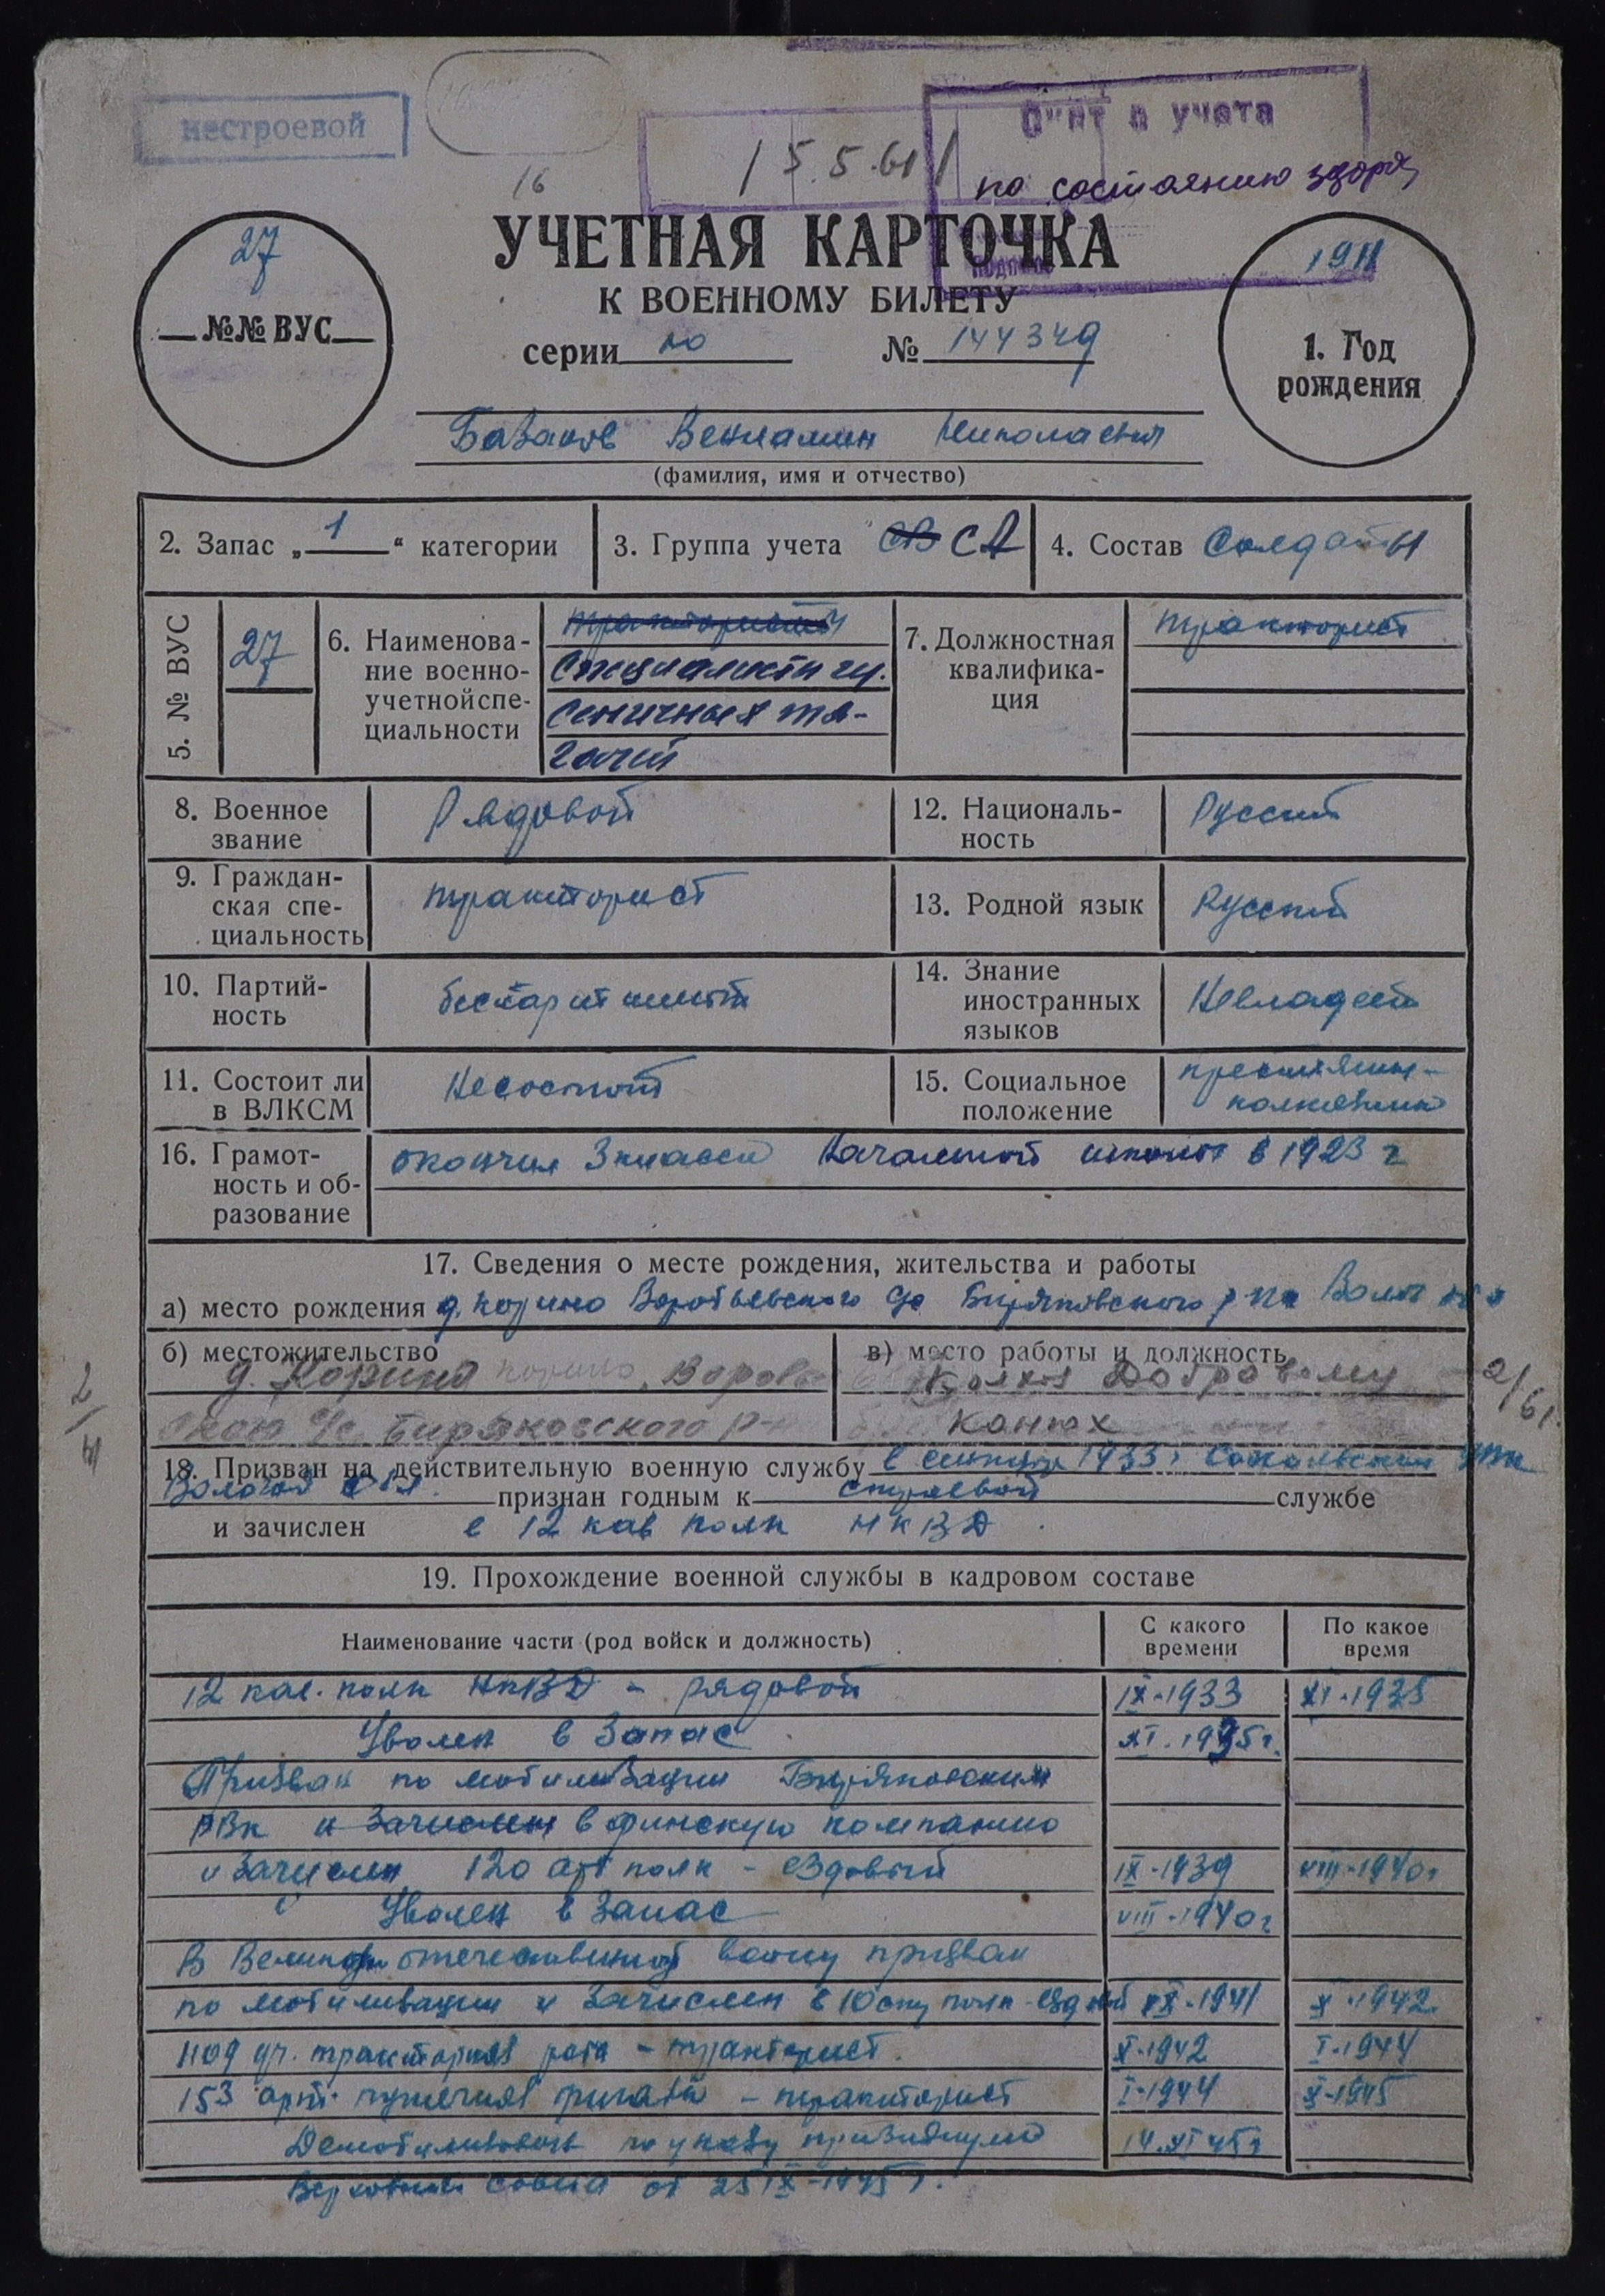 нестроевой
Снят с учета
15.5.61
по состоянию здоров
16
УЧЕТНАЯ КАРТОЧКА
К ВОЕННОМУ БИЛЕТУ
серии но № 144349
27
№№ ВУС
1911
1. Год
рождения
Базанов Вениамин Николаевич
(фамилия, имя и отчество)
2. Запас „ 1 “ категории
3. Группа учета СВ СА
4. Состав Солдаты
5. № ВУС
27
6. Наименова-
ние военно-
учетной спе-
циальности
трактористы
Специалисты гу-
сеничных тя-
гачей
7. Должностная
квалифика-
ция
тракторист
8. Военное
звание
Рядовой
12. Националь-
ность
Русский
9. Граждан-
ская спе-
циальность
тракторист
13. Родной язык
Русский
10. Партий-
ность
беспартийный
14. Знание
иностранных
языков
Невладеет
11. Состоит ли
в ВЛКСМ
Несостоит
15. Социальное
положение
крестьянин-
колхозник
16. Грамот-
ность и об-
разование
окончил 3 класса Начальной школы в 1923 г
17. Сведения о месте рождения, жительства и работы
а) место рождения д. Корино Воробьевского с/с Биряковского р-на Волог обл
б) местожительство
д. Корино
с/с Биряковского р-
в) место работы и должность
Колхоз
Конюх
2/61.
18. Призван на действительную военную службу в сентябре 1933 г Сокольским
Волог обл. признан годным к строевой службе
и зачислен в 12 кав полк НКВД
19. Прохождение военной службы в кадровом составе
Наименование части (род войск и должность)
С какого
времени
По какое
время
12 кав. полк НКВД - рядовой IX-1933 XI-1935
Уволен в запас XI.1935 г.
Призван по мобилизации Биряковским
РВК и зачислен в финскую компанию
и зачислен 120 арт полк - ездовый IX-1939 VIII-1940 г
Уволен в запас VIII-1940 г
В Великую отечественную войну призван
по мобилизации и зачислен в 10 полк - ездовой IX-1941 X-1942
1109 тракторная рота - тракторист. X-1942 I-1944
153 арт. пушечная бригада - тракторист I-1944 X-1945
Демобилизован по указу президиума 14.XI 45 г
Верховного совета от 25 IX-1945 г.